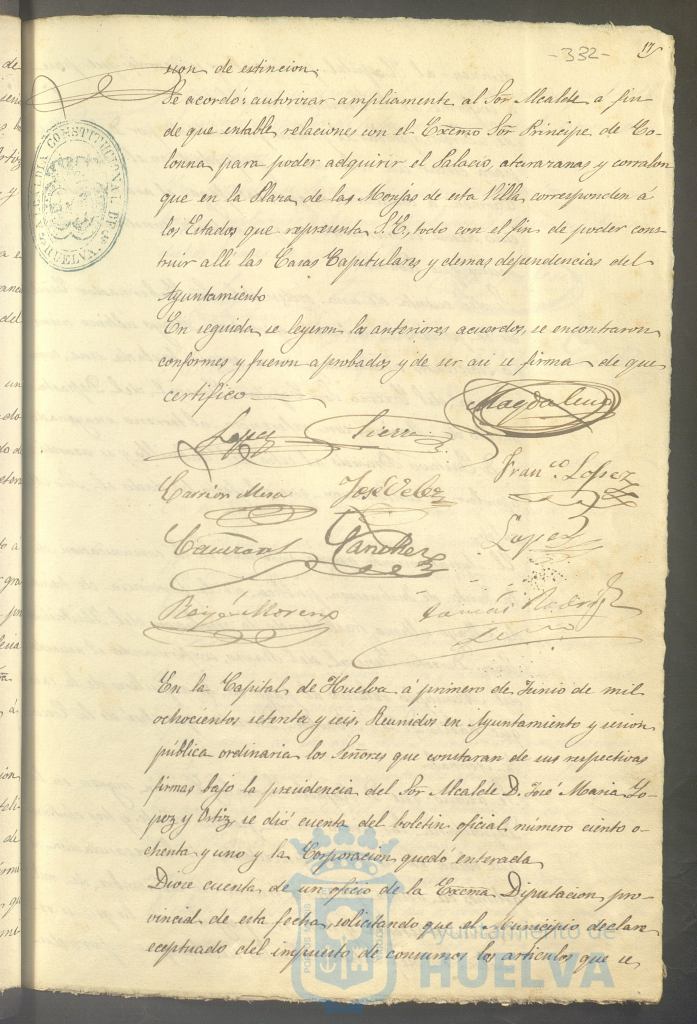 -332-
sion de estincion.
Se acordó: autorizar ampliamente al Sor Alcalde á fin
de que entable relaciones con el Excmo Sor Principe de Co-
lonna para poder adquirir el Palacio, atarazanas y corralon
que en la Plaza de las Monjas de esta Villa corresponden á
los Estados que representa S.E, todo con el fin de poder cons-
truir allí las Casas Capitulares y demas dependencias del
Ayuntamiento
En seguida se leyeron los anteriores acuerdos, se encontraron
conformes y fueron aprobados y de ser asi se firma de que
certifico
Magdaleno
Lopez Sierra
Carrion Mesa José Velez Fran.co Lopez
Sanchez Lopez
Rayo Moreno Tomás Rodrig
En la Capital de Huelva á primero de Junio de mil
ochocientos setenta y seis. Reunidos en Ayuntamiento y sesion
pública ordinaria los Señores que constaran de sus respectivas
firmas bajo la presidencia del Sor Alcalde D. José Maria Lo-
pez y Ortiz, se dió cuenta del boletin oficial número ciento o-
chenta y uno y la Corporacion quedó enterada
Diose cuenta de un oficio de la Excma Diputacion pro-
vincial de esta fecha, solicitando que el Municipio declare
eceptuado del impuesto de consumos los articulos que se
ALCALDIA CONSTITUCIONAL DE HUELVA
Ayuntamiento de
HUELVA